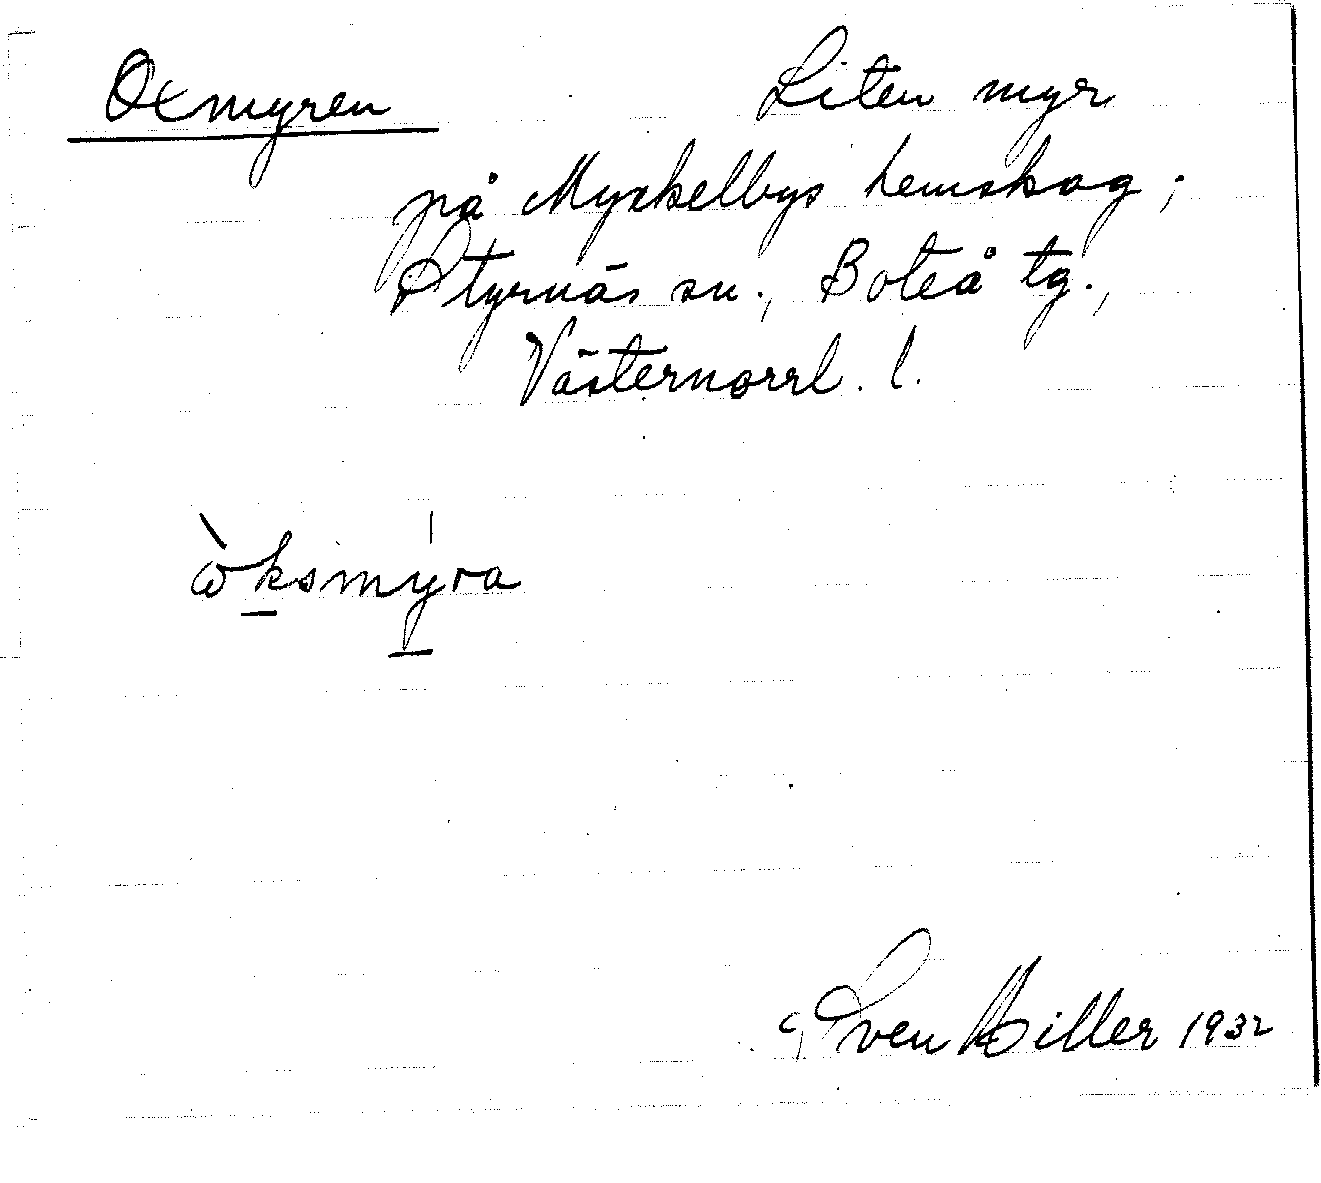 Oxmyren Liten myr
på Myckelbys hemskog;
Styrnäs sn., Boteå tg.,
Västernorrl. l.
ὼksmýra
Sven Hiller 1932